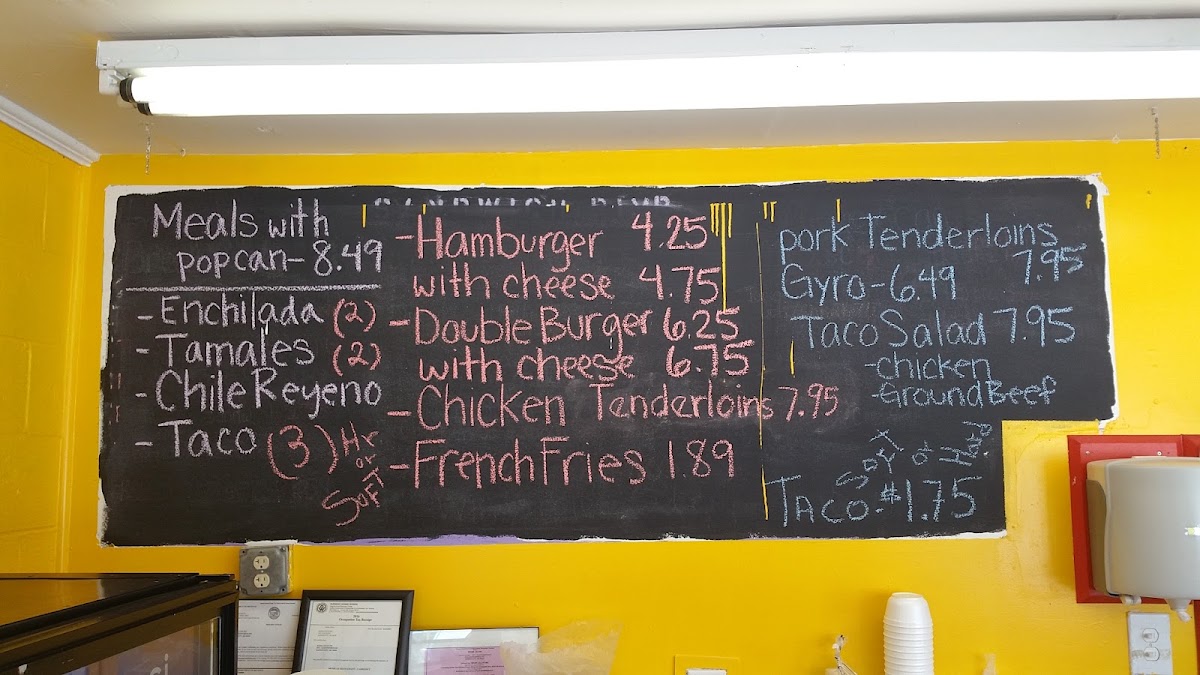 Meals with
pop can - 8.49
- Enchilada (2)
- Tamales (2)
- Chile Reyeno
- Taco (3) Hr
or
Soft
- Hamburger 4.25
with cheese 4.75
- Double Burger 6.25
with cheese 6.75
- Chicken Tenderloins 7.95
- French Fries 1.89
pork Tenderloins
7.95
Gyro - 6.49
Taco Salad 7.95
- chicken
- Ground Beef
Soft or Hard
Taco - $1.75